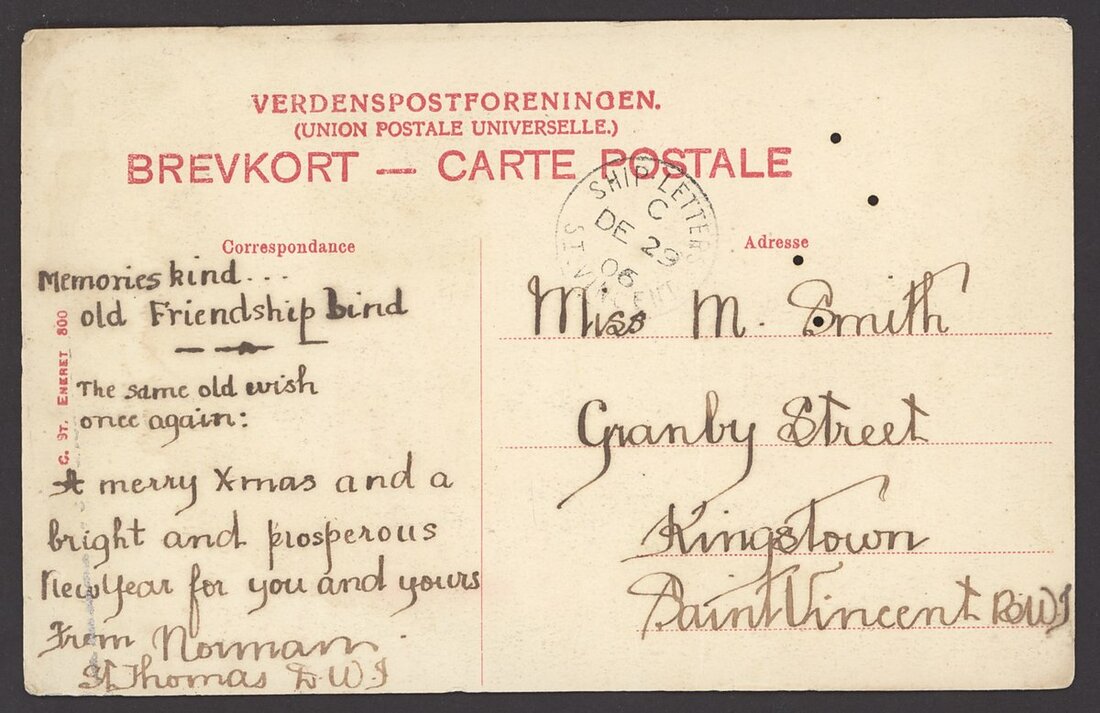 VERDENSPOSTFORENINGEN.
(UNION POSTALE UNIVERSELLE.)
BREVKORT — CARTE POSTALE
SHIP LETTERS
C
DE 29
06
ST. VINCENT
Correspondance
Memories kind...
old Friendship bind
The same old wish
once again:
A merry Xmas and a
bright and prosperous
New Year for you and yours
From Norman.
St Thomas D W I
G. ST. ENERET 800
Adresse
Miss M. Smith
Granby Street
Kingstown
Saint Vincent BWI